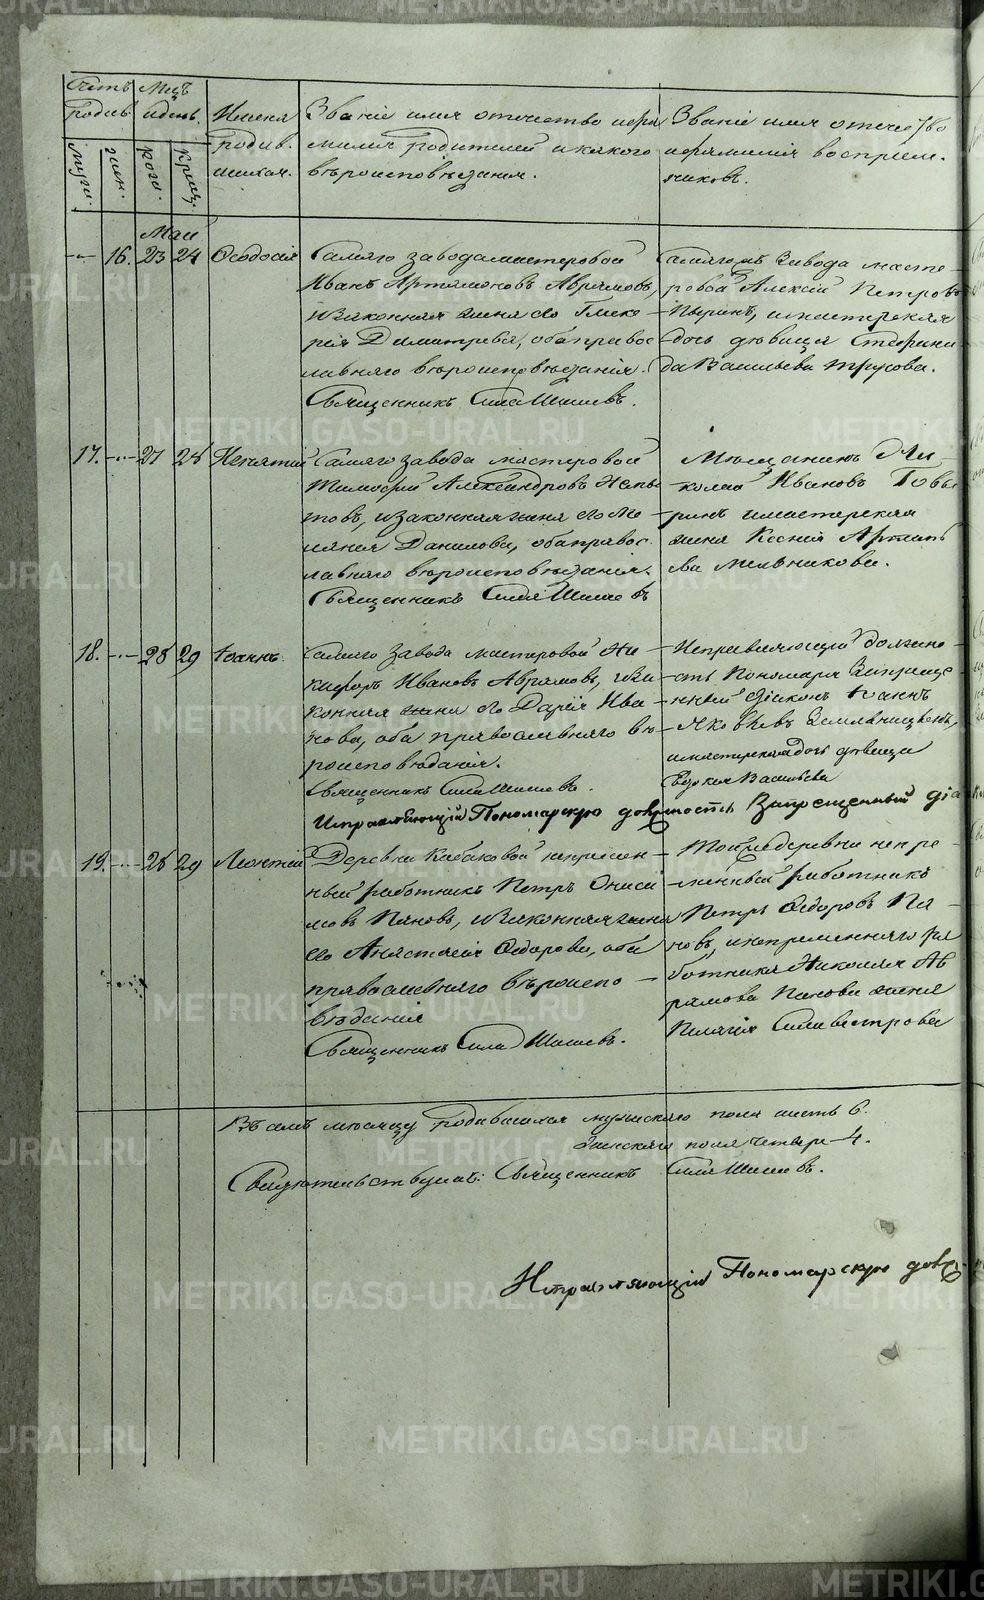 METRIKI.GASO-URAL.RU
Счетъ родив. Мцъ и день. Имена родив. шихся. Званіе имя отечество и фамилія родителей и какого вѣроисповѣданія. Званіе имя отечество и фамилія воспріемниковъ.
муж. жен. рож. крещ.
Маи
16. 23 24 Ѳеодосія
Самаго завода мастеровой
Иванъ Артамоновъ Аврамовъ,
и законная жена его Глике
рія Димитрева, оба правос
лавнаго вѣроисповѣданія.
Священникъ Сила Шишевъ.
Самагожъ завода масте
ровой Алексій Петровъ
дочь дѣвица Стефани
да Васильева
17. 27 28 Игнатій
Самаго завода мастеровой
Тимофей Александровъ
товъ, и законная жена его
Данилова, оба правос
лавнаго вѣроисповѣданія.
Священникъ Сила Шишевъ
Мѣщанинъ Ни
колай Ивановъ
ринъ и мастерская
жена Ксенія
ва Мельникова.
18. 28 29 Іоаннъ
Самаго завода мастеровой Ни
кифоръ Ивановъ Аврамовъ, и за
конная жена его Дарія Ива
нова, оба православнаго вѣ
роисповѣданія.
Священникъ Сила Шишевъ.
Исправляющій должно
сть Пономаря Запреще
нный діаконъ Іоаннъ
Яковлевъ Земляницынъ,
и мастерская дочь дѣвица
Евдокія Васильева
Исправляющій Пономарскую должность Запрещенный діа
19. 28 29 Леонтій
Деревни Кабаковой непремен
ный работникъ Петръ Ониси
мовъ Пановъ, и законная жена
его Анастасія Ѳедорова, оба
православнаго вѣроиспо
вѣданія
Священникъ Сила Шишевъ.
Тойже деревни непре
менный работникъ
Петръ Ѳедоровъ Па
новъ, и непременнаго ра
ботника Николая Ав
рамова Панова жена
Пелагія Сильвестрова
Въ семъ мѣсяцу родившихся мужскаго пола шесть 6.
женскаго пола четыре 4.
Свидѣтельствуютъ: Священникъ Сила Шишевъ.
Исправляющій Пономарскую